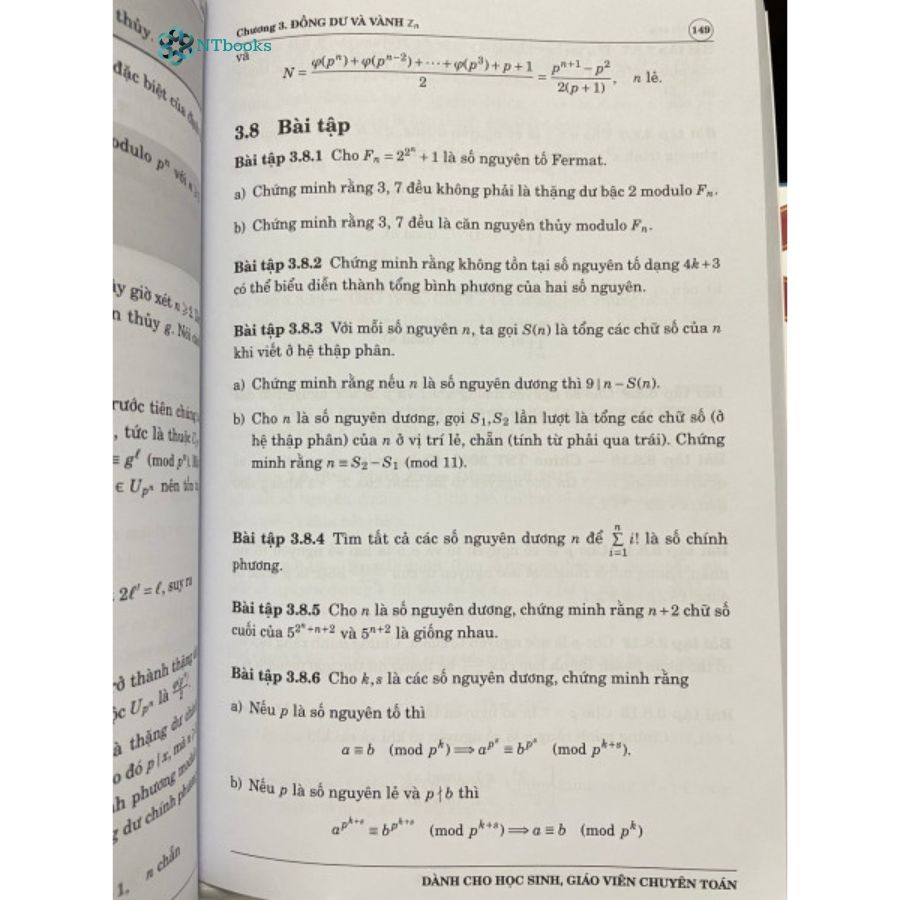 NTbooks
thủy.
đặc biệt của
modulo pⁿ với
ây giờ xét n ⩾
n thủy g. Nói
rước tiên chúng
, tức là thuộc
≡ g^ℓ (mod pⁿ).
∈ U_{pⁿ} nên tồn
2ℓ' = ℓ, suy ra
rở thành thặng
ộc U_{pⁿ} là
à thặng dư chính
o đó p | x, mà
h phương modulo
g dư chính phương
1, n chẵn
Chương 3. ĐỒNG DƯ VÀ VÀNH ℤₙ
149
và
N = (φ(pⁿ) + φ(pⁿ⁻²) + ⋯ + φ(p³) + p + 1)/2 = (pⁿ⁺¹ − p²)/(2(p + 1)), n lẻ.
3.8 Bài tập
Bài tập 3.8.1 Cho Fₙ = 2^{2ⁿ} + 1 là số nguyên tố Fermat.
a) Chứng minh rằng 3, 7 đều không phải là thặng dư bậc 2 modulo Fₙ.
b) Chứng minh rằng 3, 7 đều là căn nguyên thủy modulo Fₙ.
Bài tập 3.8.2 Chứng minh rằng không tồn tại số nguyên tố dạng 4k+3
có thể biểu diễn thành tổng bình phương của hai số nguyên.
Bài tập 3.8.3 Với mỗi số nguyên n, ta gọi S(n) là tổng các chữ số của n
khi viết ở hệ thập phân.
a) Chứng minh rằng nếu n là số nguyên dương thì 9 | n − S(n).
b) Cho n là số nguyên dương, gọi S₁,S₂ lần lượt là tổng các chữ số (ở
hệ thập phân) của n ở vị trí lẻ, chẵn (tính từ phải qua trái). Chứng
minh rằng n ≡ S₂ − S₁ (mod 11).
Bài tập 3.8.4 Tìm tất cả các số nguyên dương n để ∑_{i=1}^{n} i! là số chính
phương.
Bài tập 3.8.5 Cho n là số nguyên dương, chứng minh rằng n + 2 chữ số
cuối của 5^{2ⁿ+n+2} và 5^{n+2} là giống nhau.
Bài tập 3.8.6 Cho k,s là các số nguyên dương, chứng minh rằng
a) Nếu p là số nguyên tố thì
a ≡ b (mod p^k) ⟹ a^{p^s} ≡ b^{p^s} (mod p^{k+s}).
b) Nếu p là số nguyên lẻ và p ∤ b thì
a^{p^{k+s}} ≡ b^{p^{k+s}} (mod p^{k+s}) ⟹ a ≡ b (mod p^k)
DÀNH CHO HỌC SINH, GIÁO VIÊN CHUYÊN TOÁN